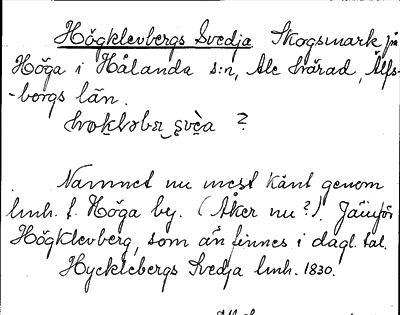 Högklevbergs Svedja Skogsmark på
Höga i Hålanda s:n, Ale härad, Älfs-
-borgs län.
?
Namnet nu mest känt genom
lmh. t. Höga by. (Åker nu?). Jämför
Högklevberg, som än finnes i dagl. tal.
Hycklebergs Svedja lmh. 1830.